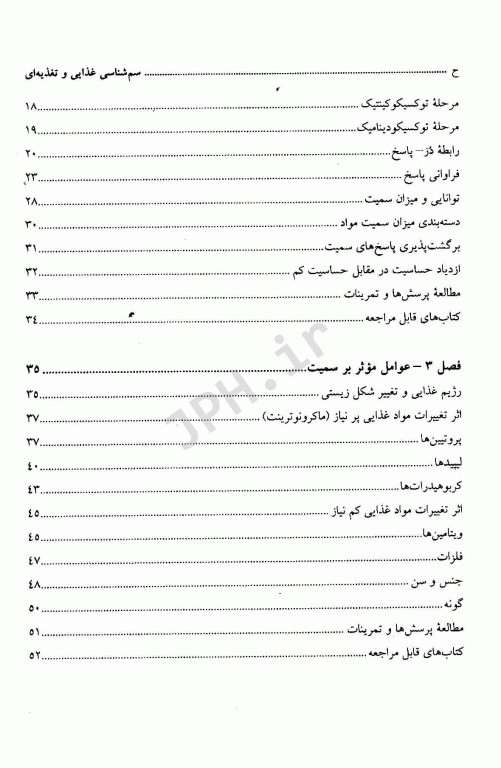 ح ........ سم‌شناسی غذایی و تغذیه‌ای
مرحلهٔ توکسیکوکینتیک ........ ۱۸
مرحلهٔ توکسیکودینامیک ........ ۱۹
رابطهٔ دُز – پاسخ ........ ۲۰
فراوانی پاسخ ........ ۲۳
توانایی و میزان سمیت ........ ۲۸
دسته‌بندی میزان سمیت مواد ........ ۳۰
برگشت‌پذیری پاسخ‌های سمیت ........ ۳۱
ازدیاد حساسیت در مقابل حساسیت کم ........ ۳۲
مطالعهٔ پرسش‌ها و تمرینات ........ ۳۳
کتاب‌های قابل مراجعه ........ ۳۴
فصل ۳ – عوامل مؤثر بر سمیت ........ ۳۵
رژیم غذایی و تغییر شکل زیستی ........ ۳۵
اثر تغییرات مواد غذایی پر نیاز (ماکرونوترینت) ........ ۳۷
پروتیین‌ها ........ ۳۷
لیپیدها ........ ۴۰
کربوهیدرات‌ها ........ ۴۳
اثر تغییرات مواد غذایی کم نیاز ........ ۴۵
ویتامین‌ها ........ ۴۵
فلزات ........ ۴۷
جنس و سن ........ ۴۸
گونه ........ ۵۰
مطالعهٔ پرسش‌ها و تمرینات ........ ۵۱
کتاب‌های قابل مراجعه ........ ۵۲
JPH.ir